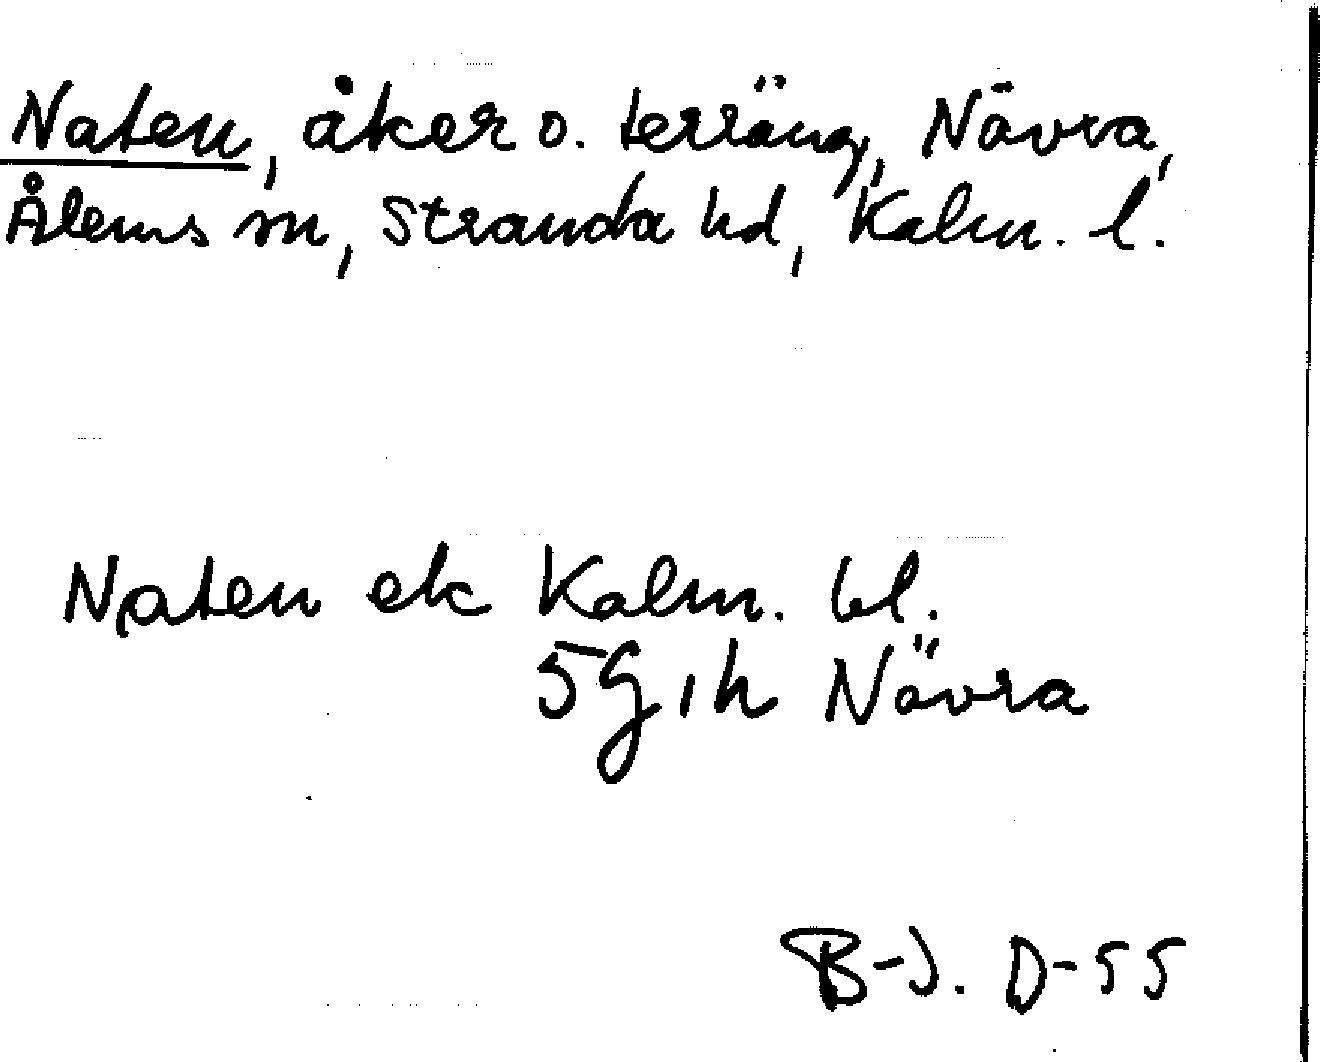 Naten, åker o. terräng, Nävra,
Ålems sn, Stranda hd, Kalm. l.
Naten ek Kalm. bl.
5G, h Nävra
B-J. D-55